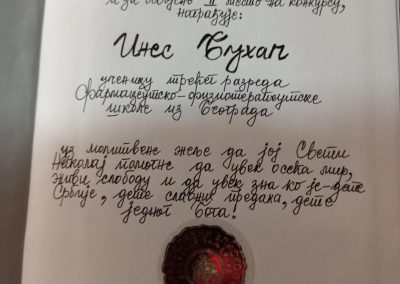 и за освојено II место на конкурсу,
награђује:
Инес Бухач
ученицу трећег разреда
Фармацеутско-физиотерапеутске
школе из Београда
уз молитвене жеље да јој Свети
Николај помогне да увек осећа мир,
живи слободу и да увек зна ко је-дете
Србије, дете славних предака, дете
једног Бога!